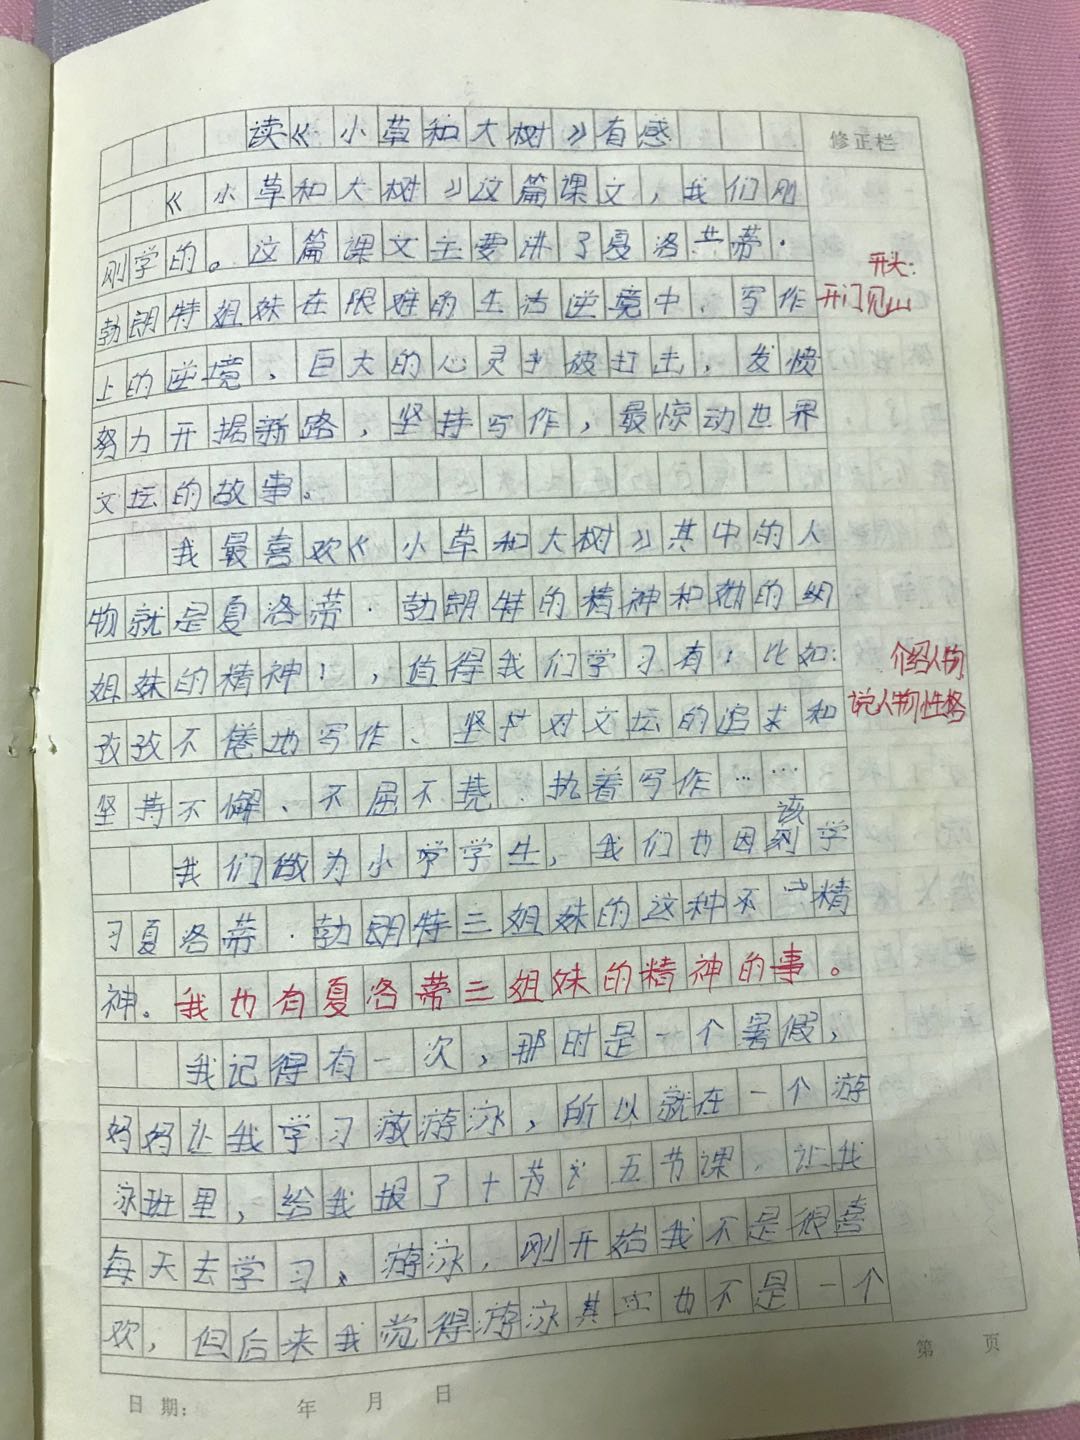 读《小草和大树》有感
修正栏
《小草和大树》这篇课文，我们刚
刚学的。这篇课文主要讲了夏洛蒂·
开头：
开门见山
勃朗特姐妹在限难的生活逆境中、写作
上的逆境、巨大的心灵被打击，发愤
努力开据新路，坚持写作，最惊动世界
文坛的故事。
我最喜欢《小草和大树》其中的人
物就是夏洛蒂·勃朗特的精神和她的
姐妹的精神！，值得我们学习有：比如：
介绍人物
说人物性格
孜孜不倦地写作、坚对文坛的追求和
坚持不懈、不屈不挠、执着写作……
我们做为小学生，我们也因该学
习夏洛蒂·勃朗特三姐妹的这种不精
神。我也有夏洛蒂三姐妹的精神的事。
我记得有一次，那时是一个暑假，
妈妈让我学习游泳，所以就在一个游
泳班里，给我报了十节五节课，让我
每天去学习、游泳，刚开始我不是很喜
欢，但后来我觉得游泳其实也不是一个
第 页
日期： 年 月 日